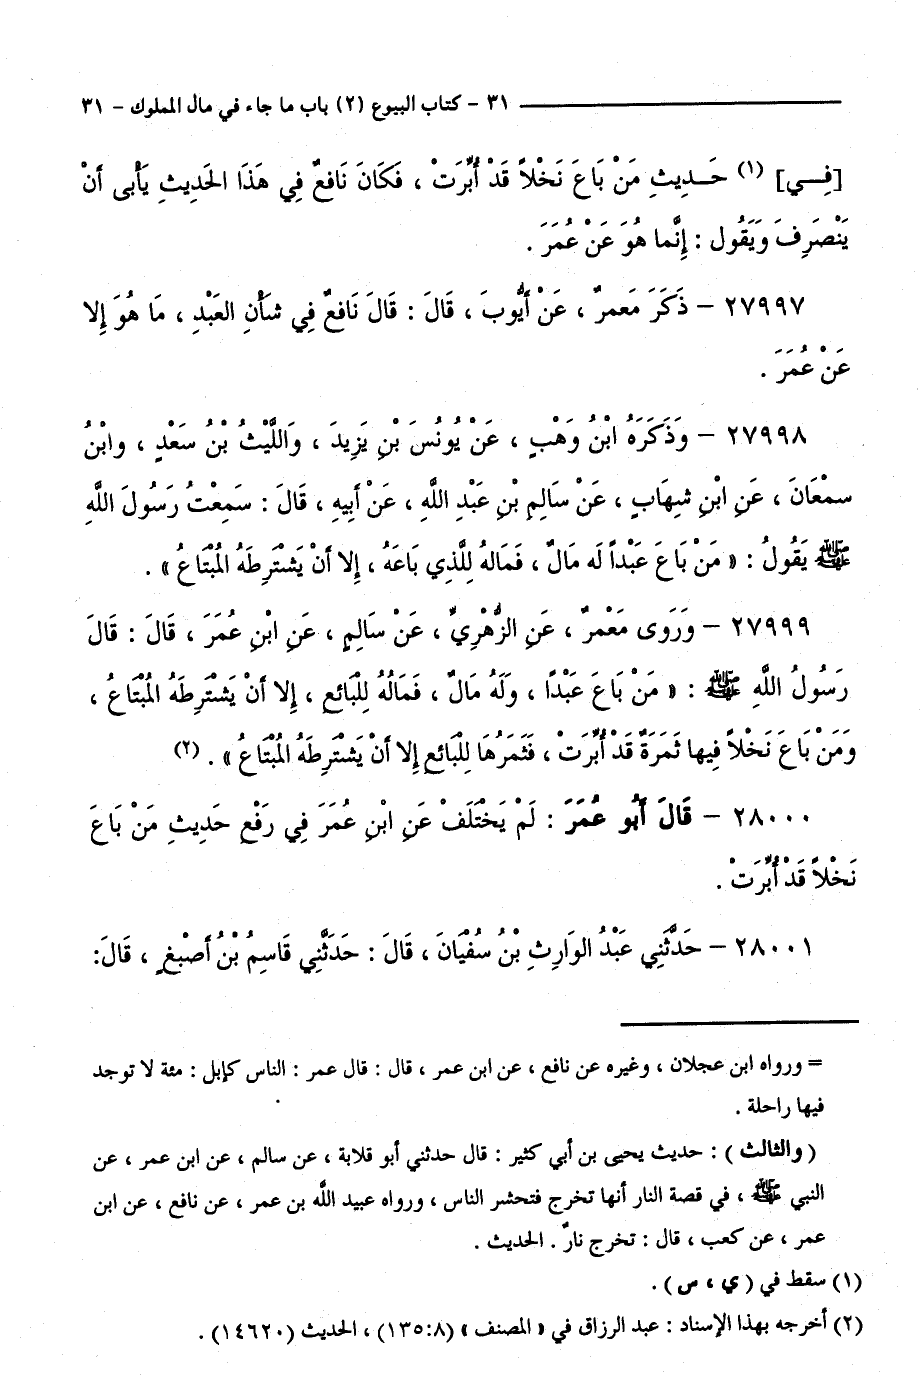 ٣١ - كتاب البيوع (٢) باب ما جاء في مال المملوك - ٣١
[فِـــي] (١) حَـــدِيثِ مَنْ بَاعَ نَخْلاً قَدْ أُبِّرَتْ ، فَكَانَ نَافعٌ فِي هَذَا الحَدِيثِ يَأْبى أنْ
يَنْصَرِفَ وَيَقُول : إِنَّما هُوَ عَنْ عُمَرَ .
٢٧٩٩٧ - ذَكَرَ مَعمرٌ ، عَنْ أيُّوبَ ، قَالَ : قَالَ نَافعٌ فِي شَأْنِ العَبْدِ ، مَا هُوَ إِلا
عَنْ عُمَرَ .
٢٧٩٩٨ - وَذَكَرَهُ ابْنُ وَهْبٍ ، عَنْ يُونُسَ بْنِ يَزِيدَ ، وَاللَّيْثُ بْنُ سَعْدٍ ، وابْنُ
سمْعَانَ ، عَنِ ابْنِ شِهَابٍ ، عَنْ سَالِمِ بْنِ عَبْدِ اللَّهِ ، عَنْ أبِيهِ ، قَالَ : سَمِعْتُ رَسُولَ اللَّهِ
ﷺ يَقُولُ : « مَنْ بَاعَ عَبْداً لَه مَالٌ ، فَمَالهُ لِلَّذِي بَاعَهُ ، إِلا أنْ يَشْتَرِطَهُ الْمُبْتَاعُ » .
٢٧٩٩٩ - وَرَوَى مَعْمرٌ ، عَنِ الزُّهْرِيِّ ، عَنْ سَالِمٍ ، عَنِ ابْنِ عُمَرَ ، قَالَ : قَالَ
رَسُولُ اللَّهِ ﷺ : « مَنْ بَاعَ عَبْدًا ، وَلَهُ مَالٌ ، فَمَالُهُ لِلْبَائعِ ، إِلا أنْ يَشْتَرِطَهُ الْمُبْتَاعُ ،
وَمَنْ بَاعَ نَخْلاً فِيها ثَمَرَةٌ قَدْ أُبِّرَتْ ، فَثَمَرُهَا لِلْبَائعِ إِلا أنْ يَشْتَرِطَهُ الْمُبْتَاعُ » . (٢)
٢٨٠٠٠ - قَالَ أَبُو عُمَرَ : لَمْ يَخْتَلَفْ عَنِ ابْنِ عُمَرَ فِي رَفْعِ حَدِيثِ مَنْ بَاعَ
نَخْلاً قَدْ أُبِّرَتْ .
٢٨٠٠١ - حَدَّثَنِي عَبْدُ الوَارِثِ بْنُ سُفْيَانَ ، قَالَ : حَدَثَّنِي قَاسِمُ بْنُ أصْبَغٍ ، قَالَ:
= ورواه ابن عجلان ، وغيره عن نافع ، عن ابن عمر ، قال : قال عمر : الناس كإبل : مئة لا توجد
فيها راحلة .
( والثالث ) : حديث يحيى بن أبي كثير : قال حدثني أبو قلابة ، عن سالم ، عن ابن عمر ، عن
النبي ﷺ ، في قصة النار أنها تخرج فتحشر الناس ، ورواه عبيد اللَّه بن عمر ، عن نافع ، عن ابن
عمر ، عن كعب ، قال : تخرج نارٌ . الحديث .
(١) سقط في ( ي ، س ) .
(٢) أخرجه بهذا الإسناد : عبد الرزاق في « المصنف » (١٣٥:٨) ، الحديث (١٤٦٢٠) .